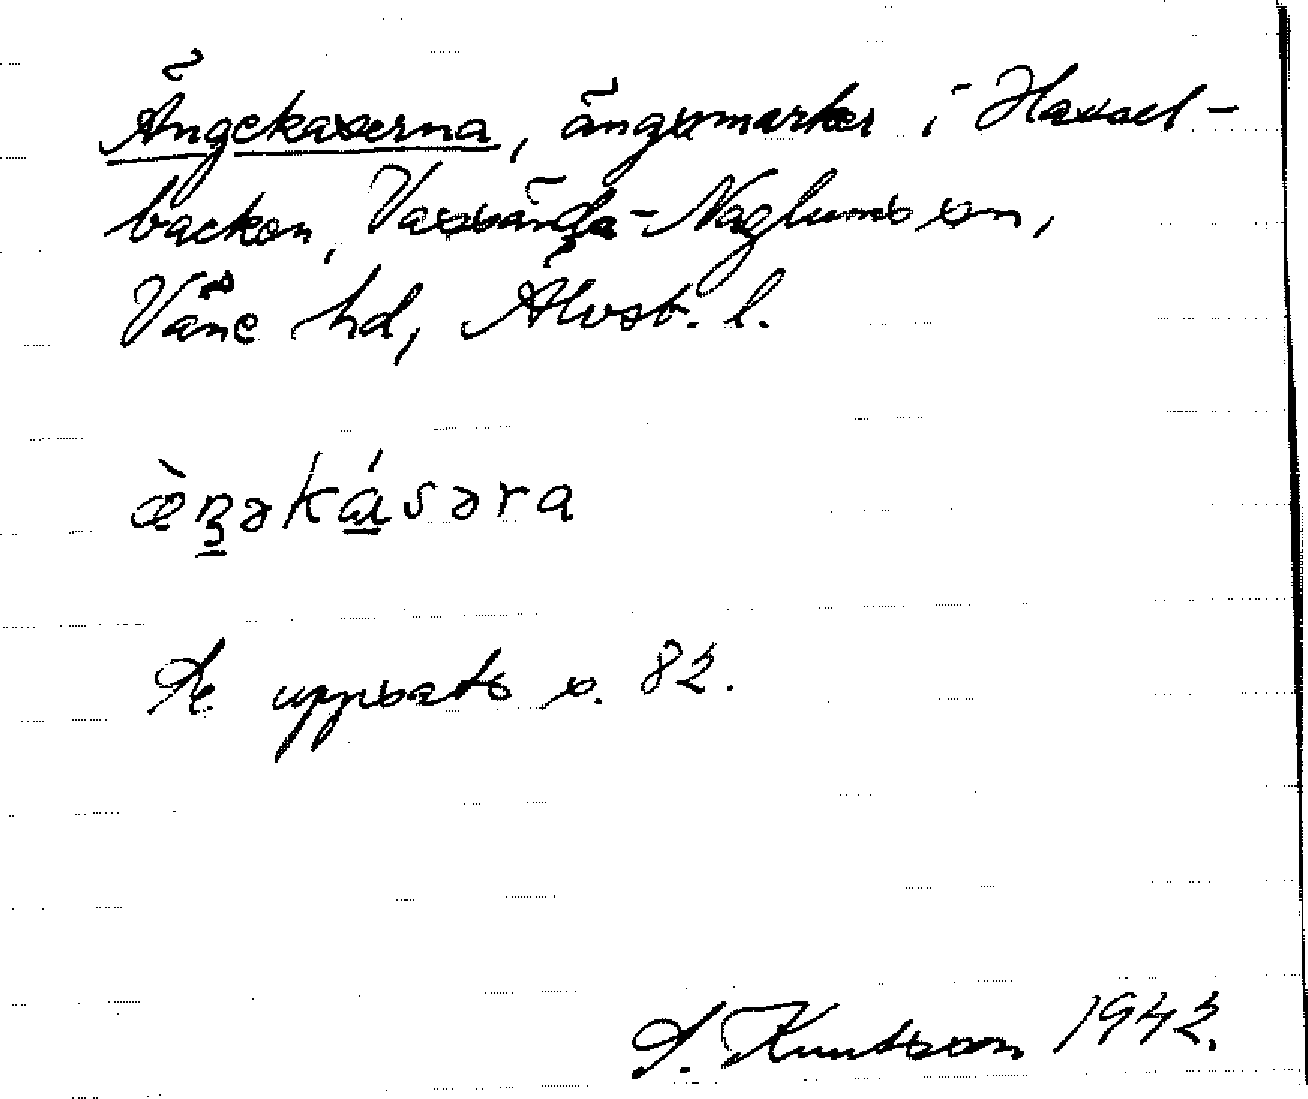 Ängekaserna, ängsmarker i Hassel-
backen, Vassända-Naglums sn,
Väne hd, Älvsb. l.
uppsats s. 82.
Knutsson 1942.